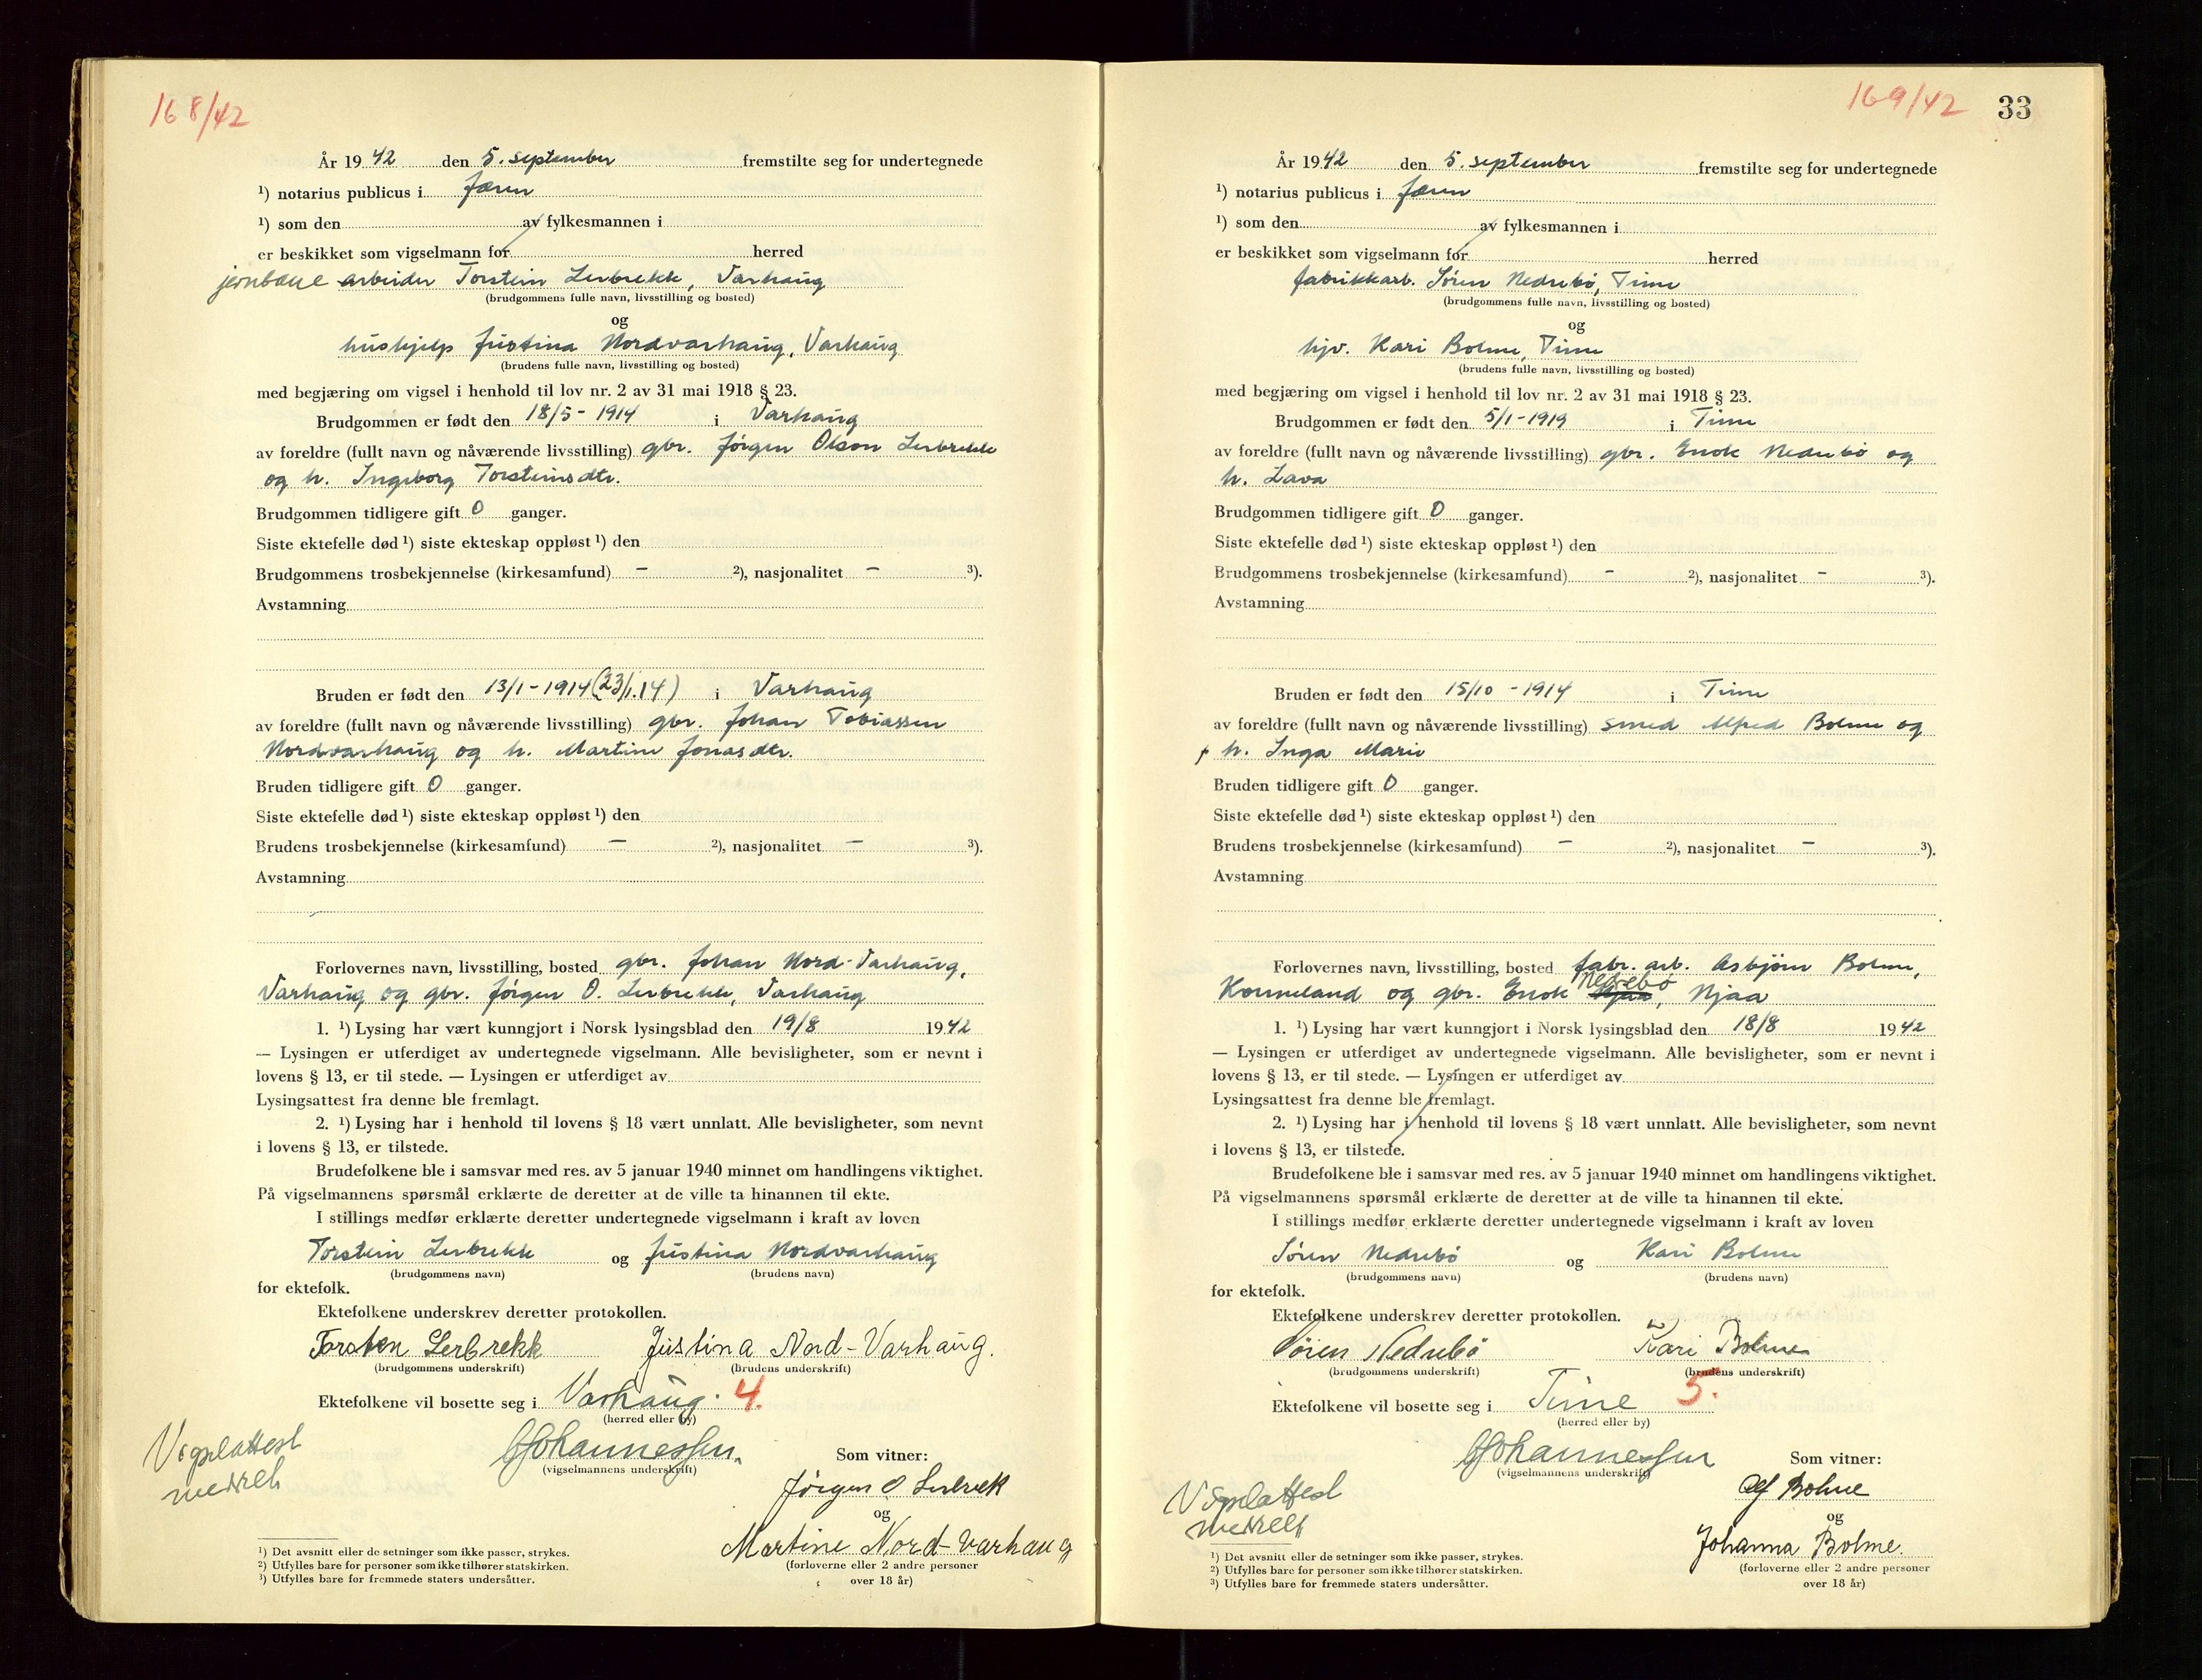 168/42
År 1942 den 5. september fremstilte seg for undertegnede
¹) notarius publicus i Jæren
¹) som den av fylkesmannen i
er beskikket som vigselmann for herred
jernbane arbeider Torstein Lerbrekk, Varhaug
(brudgommens fulle navn, livsstilling og bosted)
og
hushjelp Justina Nordvarhaug, Varhaug
(brudens fulle navn, livsstilling og bosted)
med begjæring om vigsel i henhold til lov nr. 2 av 31 mai 1918 § 23.
Brudgommen er født den 18/5 - 1914 i Varhaug
av foreldre (fullt navn og nåværende livsstilling) gbr. Jørgen Olson Lerbrekk
og h. Ingeborg Torsteinsdtr.
Brudgommen tidligere gift 0 ganger.
Siste ektefelle død ¹) siste ekteskap oppløst ¹) den
Brudgommens trosbekjennelse (kirkesamfund) - ²), nasjonalitet - ³).
Avstamning
Bruden er født den 13/1 - 1914 (23/1.14) i Varhaug
av foreldre (fullt navn og nåværende livsstilling) gbr. Johan Tobiassen
Nordvarhaug og h. Martine Jonasdtr.
Bruden tidligere gift 0 ganger.
Siste ektefelle død ¹) siste ekteskap oppløst ¹) den
Brudens trosbekjennelse (kirkesamfund) - ²), nasjonalitet - ³).
Avstamning
Forlovernes navn, livsstilling, bosted gbr. Johan Nord-Varhaug,
Varhaug og gbr. Jørgen O. Lerbrekk, Varhaug
1. ¹) Lysing har vært kunngjort i Norsk lysingsblad den 19/8 1942
— Lysingen er utferdiget av undertegnede vigselmann. Alle bevisligheter, som er nevnt i
lovens § 13, er til stede. — Lysingen er utferdiget av
Lysingsattest fra denne ble fremlagt.
2. ¹) Lysing har i henhold til lovens § 18 vært unnlatt. Alle bevisligheter, som nevnt
i lovens § 13, er tilstede.
Brudefolkene ble i samsvar med res. av 5 januar 1940 minnet om handlingens viktighet.
På vigselmannens spørsmål erklærte de deretter at de ville ta hinannen til ekte.
I stillings medfør erklærte deretter undertegnede vigselmann i kraft av loven
Torstein Lerbrekk og Justina Nordvarhaug
(brudgommens navn) (brudens navn)
for ektefolk.
Ektefolkene underskrev deretter protokollen.
Torsten Lerbrekk Justina Nord-Varhaug.
(brudgommens underskrift) (brudens underskrift)
Ektefolkene vil bosette seg i Varhaug. 4.
(herred eller by)
Vigselattest
Johannessen.
(vigselmannens underskrift)
Som vitner:
Jørgen O Lerbrek
og
Martine Nord-Varhaug
(forloverne eller 2 andre personer
over 18 år)
¹) Det avsnitt eller de setninger som ikke passer, strykes.
²) Utfylles bare for personer som ikke tilhører statskirken.
³) Utfylles bare for fremmede staters undersåtter.
169/42 33
År 1942 den 5. september fremstilte seg for undertegnede
¹) notarius publicus i Jæren
¹) som den av fylkesmannen i
er beskikket som vigselmann for herred
fabrikkarb. Søren Nedrebø, Time
(brudgommens fulle navn, livsstilling og bosted)
og
hjv. Kari Bolme, Time
(brudens fulle navn, livsstilling og bosted)
med begjæring om vigsel i henhold til lov nr. 2 av 31 mai 1918 § 23.
Brudgommen er født den 5/1 - 1919 i Time
av foreldre (fullt navn og nåværende livsstilling) gbr. Enok Nedrebø og
h. Lava
Brudgommen tidligere gift 0 ganger.
Siste ektefelle død ¹) siste ekteskap oppløst ¹) den
Brudgommens trosbekjennelse (kirkesamfund) - ²), nasjonalitet - ³).
Avstamning
Bruden er født den 15/10 - 1914 i Time
av foreldre (fullt navn og nåværende livsstilling) smed Alfred Bolme og
h. Inga Marie
Bruden tidligere gift 0 ganger.
Siste ektefelle død ¹) siste ekteskap oppløst ¹) den
Brudens trosbekjennelse (kirkesamfund) - ²), nasjonalitet - ³).
Avstamning
Forlovernes navn, livsstilling, bosted fabr. arb. Asbjørn Bolme,
Nedrebø
Kverneland og gbr. Enok Njaa, Njaa
1. ¹) Lysing har vært kunngjort i Norsk lysingsblad den 18/8 1942
— Lysingen er utferdiget av undertegnede vigselmann. Alle bevisligheter, som er nevnt i
lovens § 13, er til stede. — Lysingen er utferdiget av
Lysingsattest fra denne ble fremlagt.
2. ¹) Lysing har i henhold til lovens § 18 vært unnlatt. Alle bevisligheter, som nevnt
i lovens § 13, er tilstede.
Brudefolkene ble i samsvar med res. av 5 januar 1940 minnet om handlingens viktighet.
På vigselmannens spørsmål erklærte de deretter at de ville ta hinannen til ekte.
I stillings medfør erklærte deretter undertegnede vigselmann i kraft av loven
Søren Nedrebø og Kari Bolme
(brudgommens navn) (brudens navn)
for ektefolk.
Ektefolkene underskrev deretter protokollen.
Søren Nedrebø Kari Bolme
(brudgommens underskrift) (brudens underskrift)
Ektefolkene vil bosette seg i Time 5.
(herred eller by)
Vigselattest
Johannessen
(vigselmannens underskrift)
Som vitner:
Alf Bolme
og
Johanna Bolme.
(forloverne eller 2 andre personer
over 18 år)
¹) Det avsnitt eller de setninger som ikke passer, strykes.
²) Utfylles bare for personer som ikke tilhører statskirken.
³) Utfylles bare for fremmede staters undersåtter.